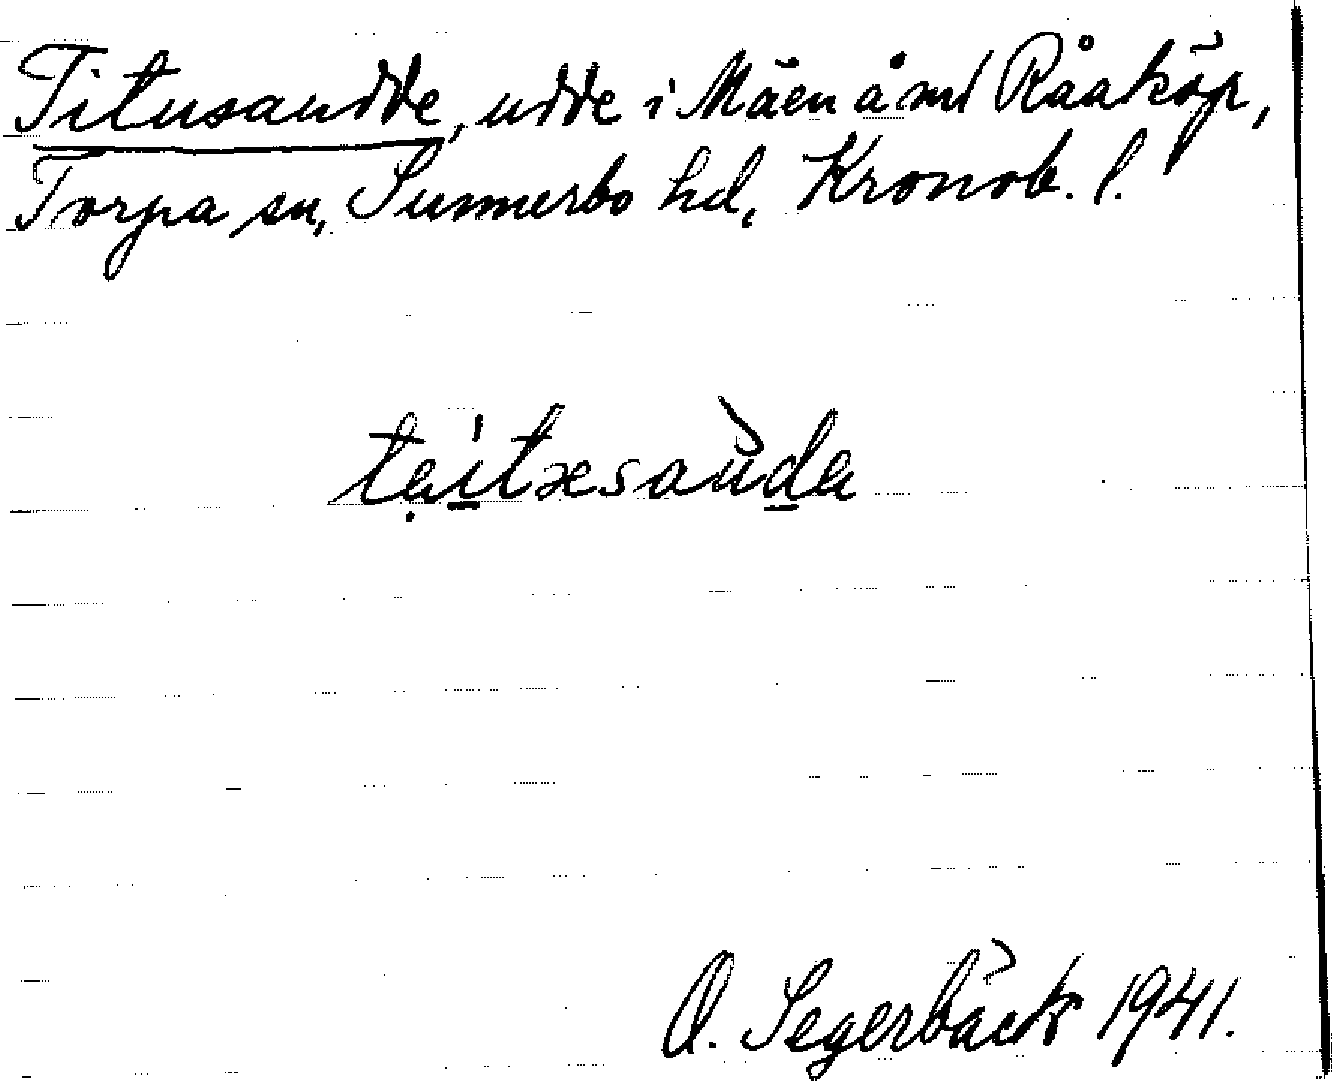 Titusaudde, udde i Mäen å ml Råaköp,
Torpa sn, Sunnerbo hd, Kronob. l.
O. Segerbäck 1941.